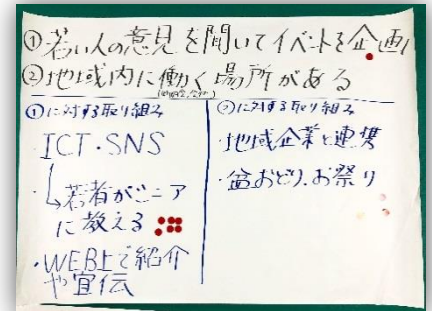 ①若い人の意見を聞いてイベントを企画
②地域内に働く場所がある
①に対する取り組み
・ICT・SNS
↳若者がシニア
に教える
・WEB上で紹介
や宣伝
②に対する取り組み
・地域企業と連携
・盆おどり、お祭り